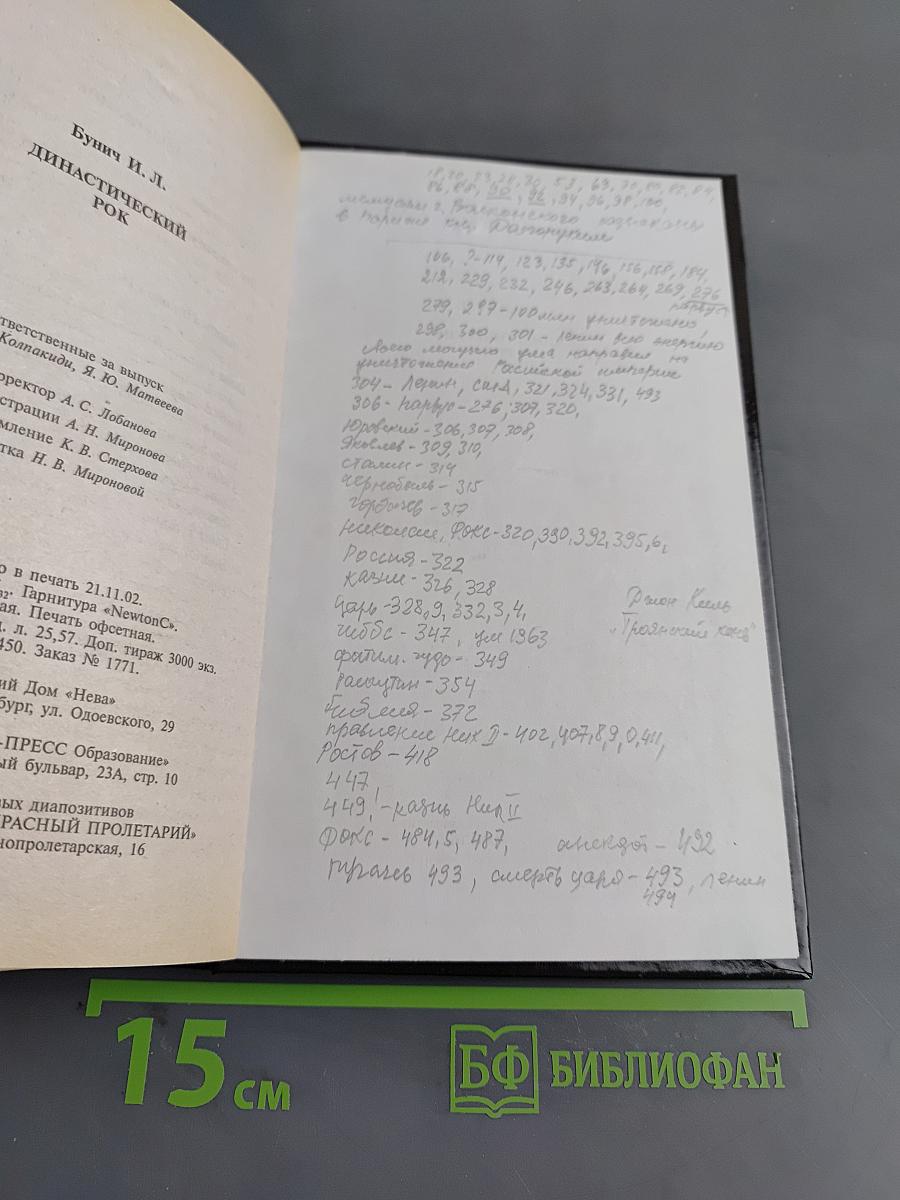 Бунич И. Л.
ДИНАСТИЧЕСКИЙ
РОК
тветственные за выпуск
Колпакиди, Я. Ю. Матвеева
рректор А. С. Лобанова
страции А. Н. Миронова
мление К. В. Стерхова
тка Н. В. Мироновой
о в печать 21.11.02.
Гарнитура «NewtonC».
ая. Печать офсетная.
. л. 25,57. Доп. тираж 3000 экз.
450. Заказ № 1771.
ий Дом «Нева»
бург, ул. Одоевского, 29
-ПРЕСС Образование»
ый бульвар, 23А, стр. 10
ых диапозитивов
РАСНЫЙ ПРОЛЕТАРИЙ»
нопролетарская, 16
86, 88, 90, 92, 94, 96, 98, 100,
в Париже
106, ?-114, 123, 135, 146, 156, 158, 184,
212, 229, 232, 246, 263, 264, 269, 276
Парвус
279, 287-100 млн уничтожено,
298, 300, 301 - Ленин всю энергию
своего могучего ума направил на
уничтожение Российской империи
304 - Ленин, США, 321, 324, 331, 493
306 - Парвус - 276, 307, 320,
Юровский - 306, 307, 308,
Яковлев - 309, 310,
Сталин - 314
Чернобыль - 315
Горбачев - 317
Николаи, Фокс - 320, 390, 392, 395, 6,
Россия - 322
казни - 326, 328
Царь - 328, 9, 332, 3, 4,
Гиббс - 347, ум 1963
фатим. чудо - 349
Распутин - 354
Библия - 372
правление Ник II - 402, 407, 8, 9, 0, 411,
Ростов - 418
447,
449! - казнь Ник II
Фокс - 484, 5, 487, анекдот - 492
Пугачев 493, смерть царя - 493, Ленин
494
Джон Кель
"Троянский конь"
15 см
БФ БИБЛИОФАН